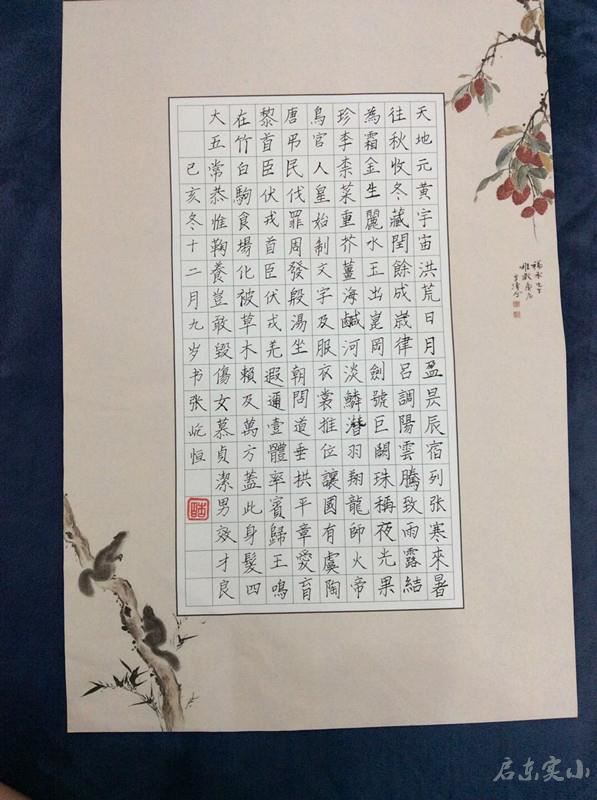 天地元黄宇宙洪荒日月盈昃辰宿列张寒來暑
往秋收冬藏閏餘成歲律吕調陽雲騰致雨露結
為霜金生麗水玉出崑岡劍號巨闕珠稱夜光果
珍李柰菜重芥薑海鹹河淡鱗潛羽翔龍師火帝
鳥官人皇始制文字及服衣裳推位讓國有虞陶
唐吊民伐罪周發殷湯坐朝問道垂拱平章愛育
黎首臣伏戎首臣伏戎羌遐邇壹體率賓歸王鳴
在竹白駒食場化被草木賴及萬方蓋此身髮四
大五常恭惟鞠養豈敢毀傷女慕貞潔男效才良
己亥冬十二月九岁书张屹恒
启东实小